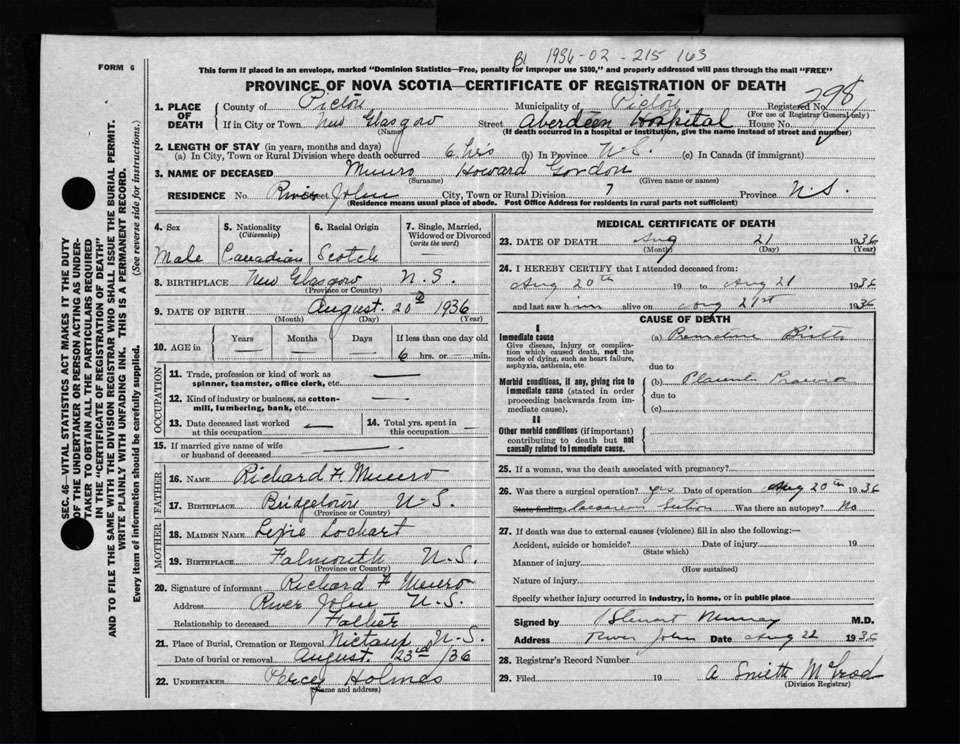 FORM 6
1936-02-215 163
This form if placed in an envelope, marked "Dominion Statistics—Free, penalty for improper use $300," and properly addressed will pass through the mail "FREE"
PROVINCE OF NOVA SCOTIA—CERTIFICATE OF REGISTRATION OF DEATH
1. PLACE OF DEATH
County of Pictou Municipality of Pictou Registered No. 298
(For use of Registrar General only)
If in City or Town New Glasgow Street Aberdeen Hospital House No.
(Name) (If death occurred in a hospital or institution, give the name instead of street and number)
2. LENGTH OF STAY (in years, months and days)
(a) In City, Town or Rural Division where death occurred 6 hrs (b) In Province N.S. (c) In Canada (if immigrant)
3. NAME OF DECEASED Munro Howard Gordon
(Surname) (Given name or names)
RESIDENCE No. River John City, Town or Rural Division 7 Province N.S.
(Residence means usual place of abode. Post Office Address for residents in rural parts not sufficient)
4. Sex Male
5. Nationality (Citizenship) Canadian
6. Racial Origin Scotch
7. Single, Married, Widowed or Divorced (write the word) —
8. BIRTHPLACE New Glasgow N.S.
(Province or Country)
9. DATE OF BIRTH August 20th 1936
(Month) (Day) (Year)
10. AGE in Years — Months — Days — If less than one day old 6 hrs. or — min.
OCCUPATION
11. Trade, profession or kind of work as spinner, teamster, office clerk, etc. —
12. Kind of industry or business, as cotton-mill, lumbering, bank, etc. —
13. Date deceased last worked at this occupation —
14. Total yrs. spent in this occupation —
15. If married give name of wife or husband of deceased —
FATHER
16. NAME Richard F. Munro
17. BIRTHPLACE Bridgetown N.S.
(Province or Country)
MOTHER
18. MAIDEN NAME Lochart
19. BIRTHPLACE Falmouth N.S.
(Province or Country)
20. Signature of informant Richard F Munro
Address River John N.S.
Relationship to deceased Father
21. Place of Burial, Cremation or Removal Nictaux N.S.
Date of burial or removal August 23rd /36
22. UNDERTAKER Percey Holmes
(Name and address)
MEDICAL CERTIFICATE OF DEATH
23. DATE OF DEATH Aug 21 1936
(Month) (Day) (Year)
24. I HEREBY CERTIFY that I attended deceased from:
Aug 20th 19 to Aug 21 1936
and last saw him alive on Aug 21st 1936
CAUSE OF DEATH
I
Immediate cause
Give disease, injury or complication which caused death, not the mode of dying, such as heart failure, asphyxia, asthenia, etc.
(a) Premature Birth
due to
Morbid conditions, if any, giving rise to immediate cause (stated in order proceeding backwards from immediate cause).
(b) Placenta Praevia
due to
(c)
II
Other morbid conditions (if important) contributing to death but not causally related to immediate cause.
25. If a woman, was the death associated with pregnancy?
26. Was there a surgical operation? yes Date of operation Aug 20th 1936
State finding Caesarean Section Was there an autopsy? No
27. If death was due to external causes (violence) fill in also the following:—
Accident, suicide or homicide? Date of injury 19
(State which)
Manner of injury
(How sustained)
Nature of injury
Specify whether injury occurred in industry, in home, or in public place
Signed by Stewart Murray M.D.
Address River John Date Aug 22 1936
28. Registrar's Record Number
29. Filed 19 A
(Division Registrar)
SEC. 46—VITAL STATISTICS ACT MAKES IT THE DUTY
OF THE UNDERTAKER OR PERSON ACTING AS UNDER-
TAKER TO OBTAIN ALL THE PARTICULARS REQUIRED
IN THE "CERTIFICATE OF REGISTRATION OF DEATH"
AND TO FILE THE SAME WITH THE DIVISION REGISTRAR WHO SHALL ISSUE THE BURIAL PERMIT.
WRITE PLAINLY WITH UNFADING INK. THIS IS A PERMANENT RECORD.
Every item of information should be carefully supplied. (See reverse side for instructions.)